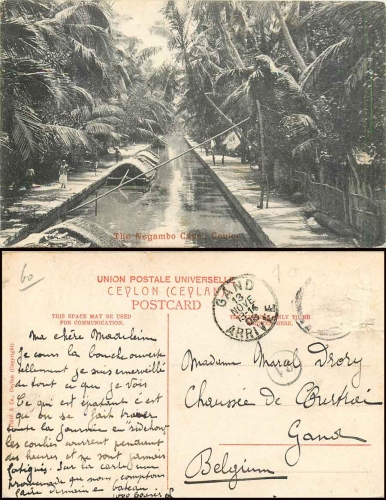 The Negambo Canal Ceylon
60
UNION POSTALE UNIVERSELLE
CEYLON (CEYLAN)
POSTCARD
THIS SPACE MAY BE USED
FOR COMMUNICATION.
GAND
13
NOVE
08
ARRIVÉE
Ma chère Madeleine
Je cours la bouche ouverte
tellement je suis émerveillé
de tout ce que je vois
Ce qui est épatant c'est
que on se fait
toute la journée en
les coolies courent pendant
des heures et ne sont jamais
fatigués. Sur la carte une
promenade que nous comptons
faire demain en bateau.
Madame Marcel
Chaussée de Courtrai
Gand
Belgium